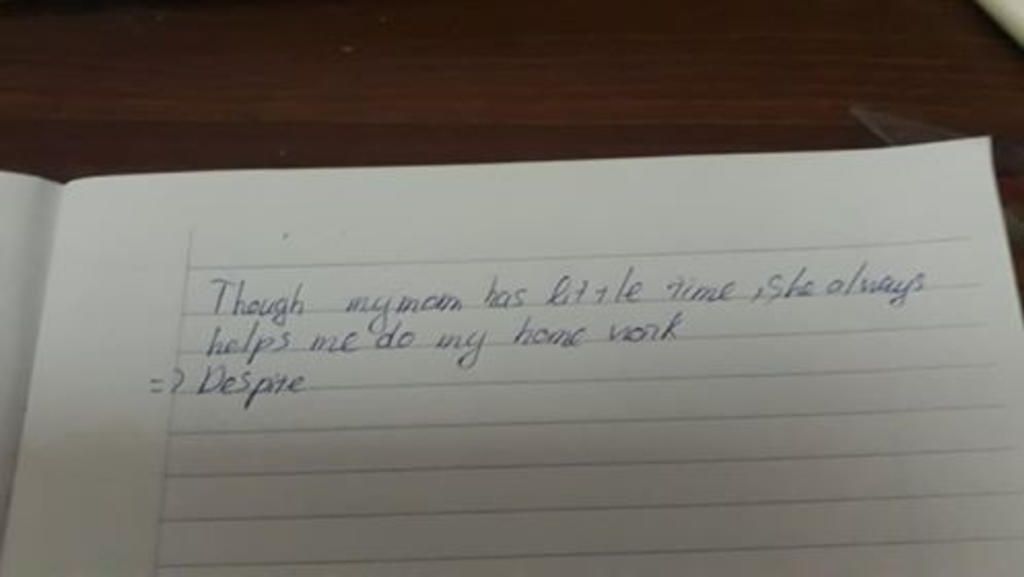 Though my mom has little time, she always
helps me do my home work
=> Despite